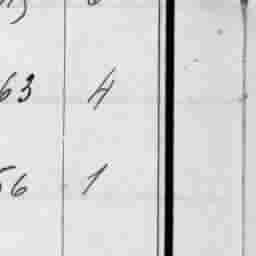 63 4
56 1